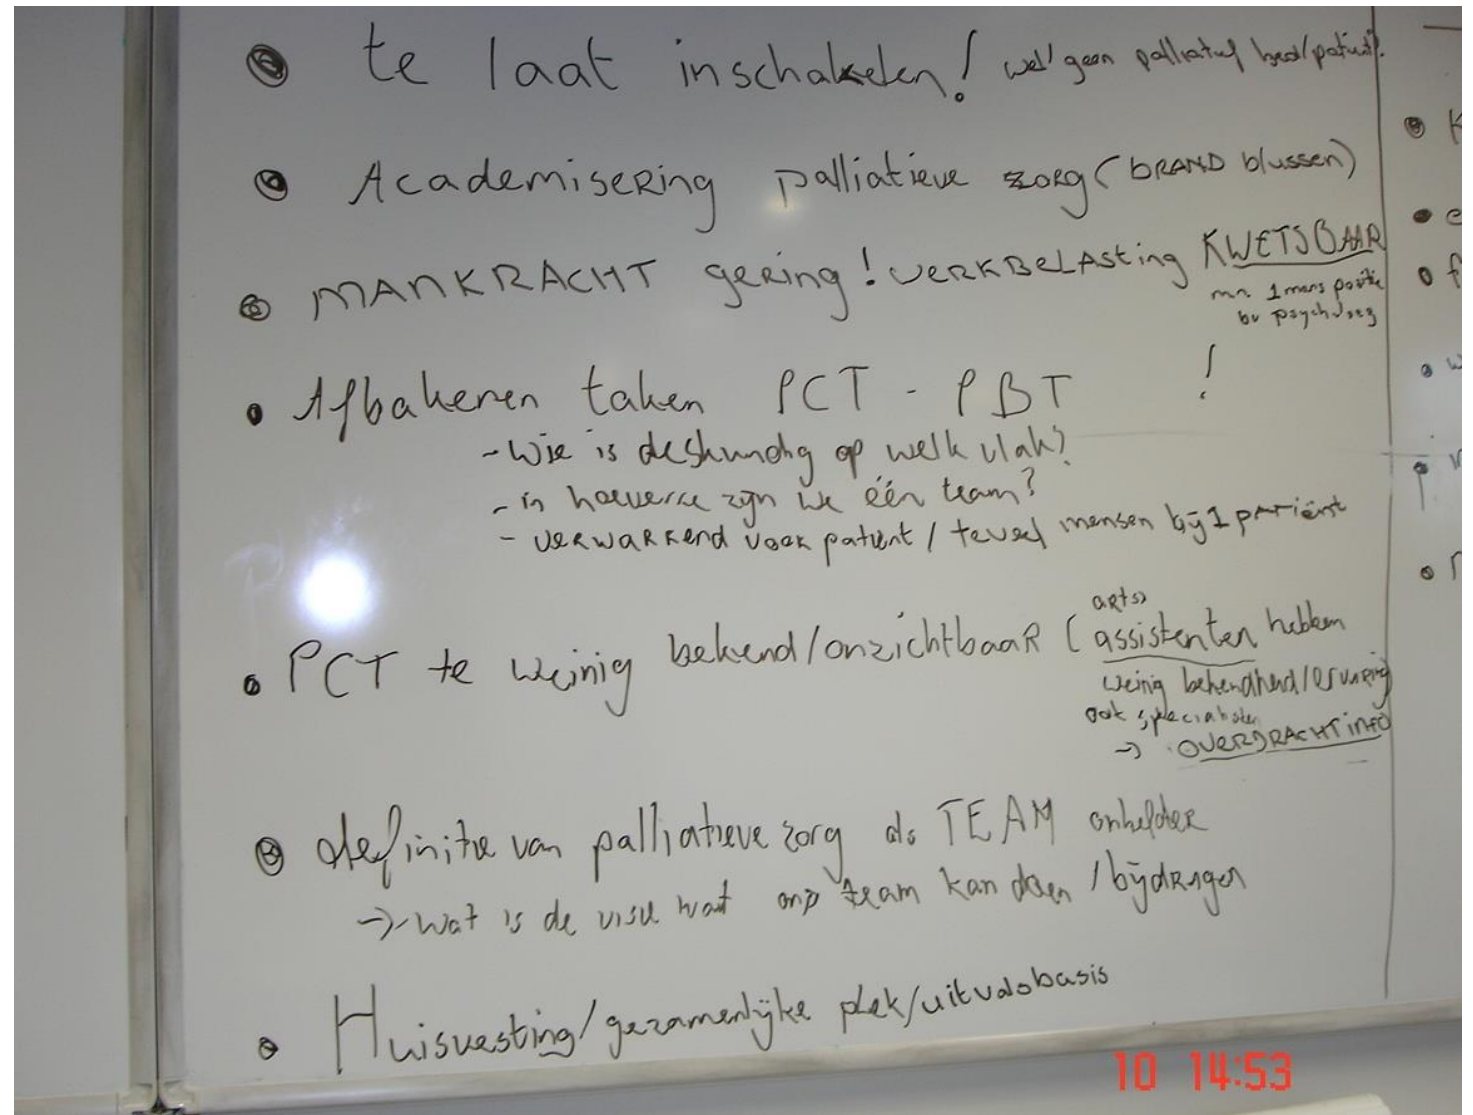 te laat inschakelen! wel/geen palliatief bed/patiënt?
Academisering palliatieve zorg (BRAND blussen)
MANKRACHT gering! WERKBELASting KWETSBAAR
m.n. 1 mans positie
bv psycholoog
Afbakenen taken PCT - PBT !
- Wie is deskundig op welk vlak?
- in hoeverre zijn we één team?
- verwarrend voor patiënt / teveel mensen bij 1 patiënt
PCT te weinig bekend/onzichtbaar (assistenten hebben
arts)
weinig bekendheid/ervaring
ook specialisten
→ OVERDRACHT info
definitie van palliatieve zorg als TEAM onhelder
→ - wat is de visie wat ons team kan doen / bijdragen
Huisvesting/gezamenlijke plek/uitvalsbasis
10 14:53